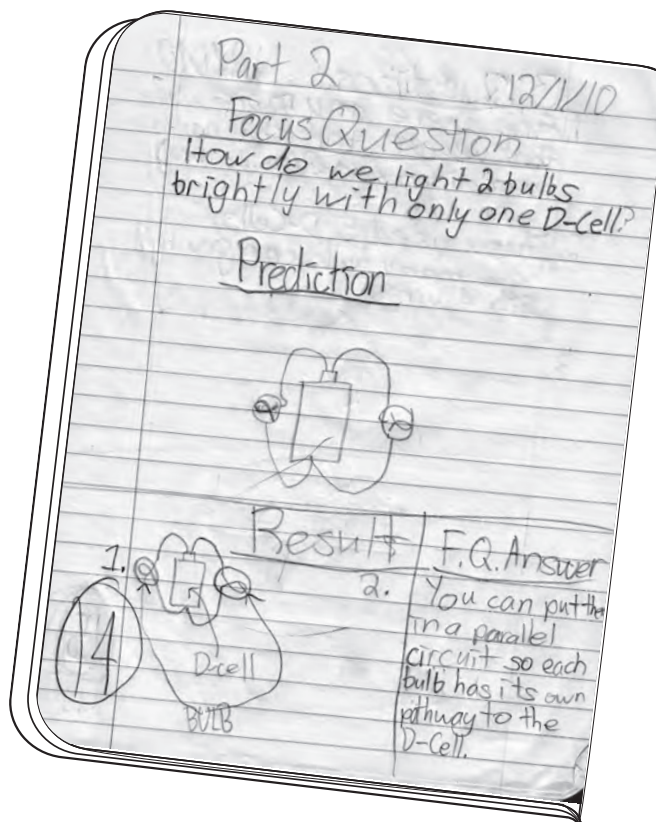 Part 2
12/1/10
Focus Question
How do we light 2 bulbs
brightly with only one D-Cell?
Prediction
Result
F.Q. Answer
1.
D-cell
BULB
14
2.
You can put the
in a parallel
circuit so each
bulb has its own
pthway to the
D-Cell.